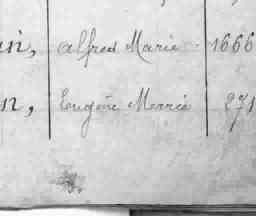 in, Alfred Marie 1666
n, Eugène Marie 271